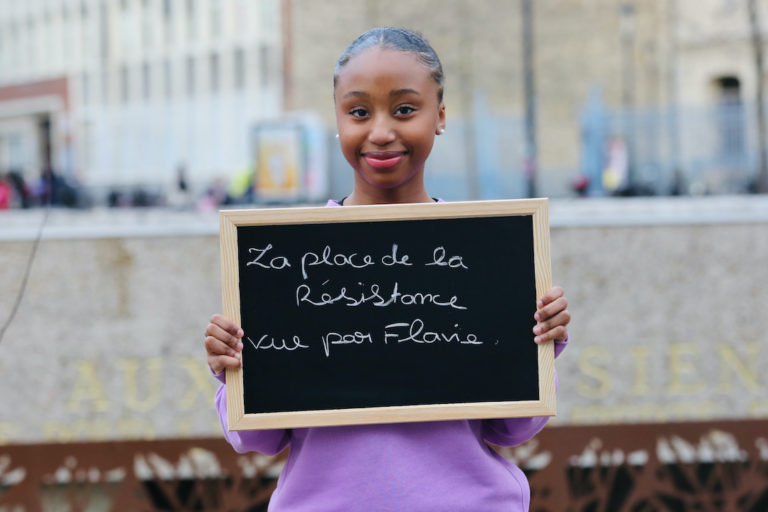 La place de la
Résistance
vue par Flavie.
AUX
SIEN